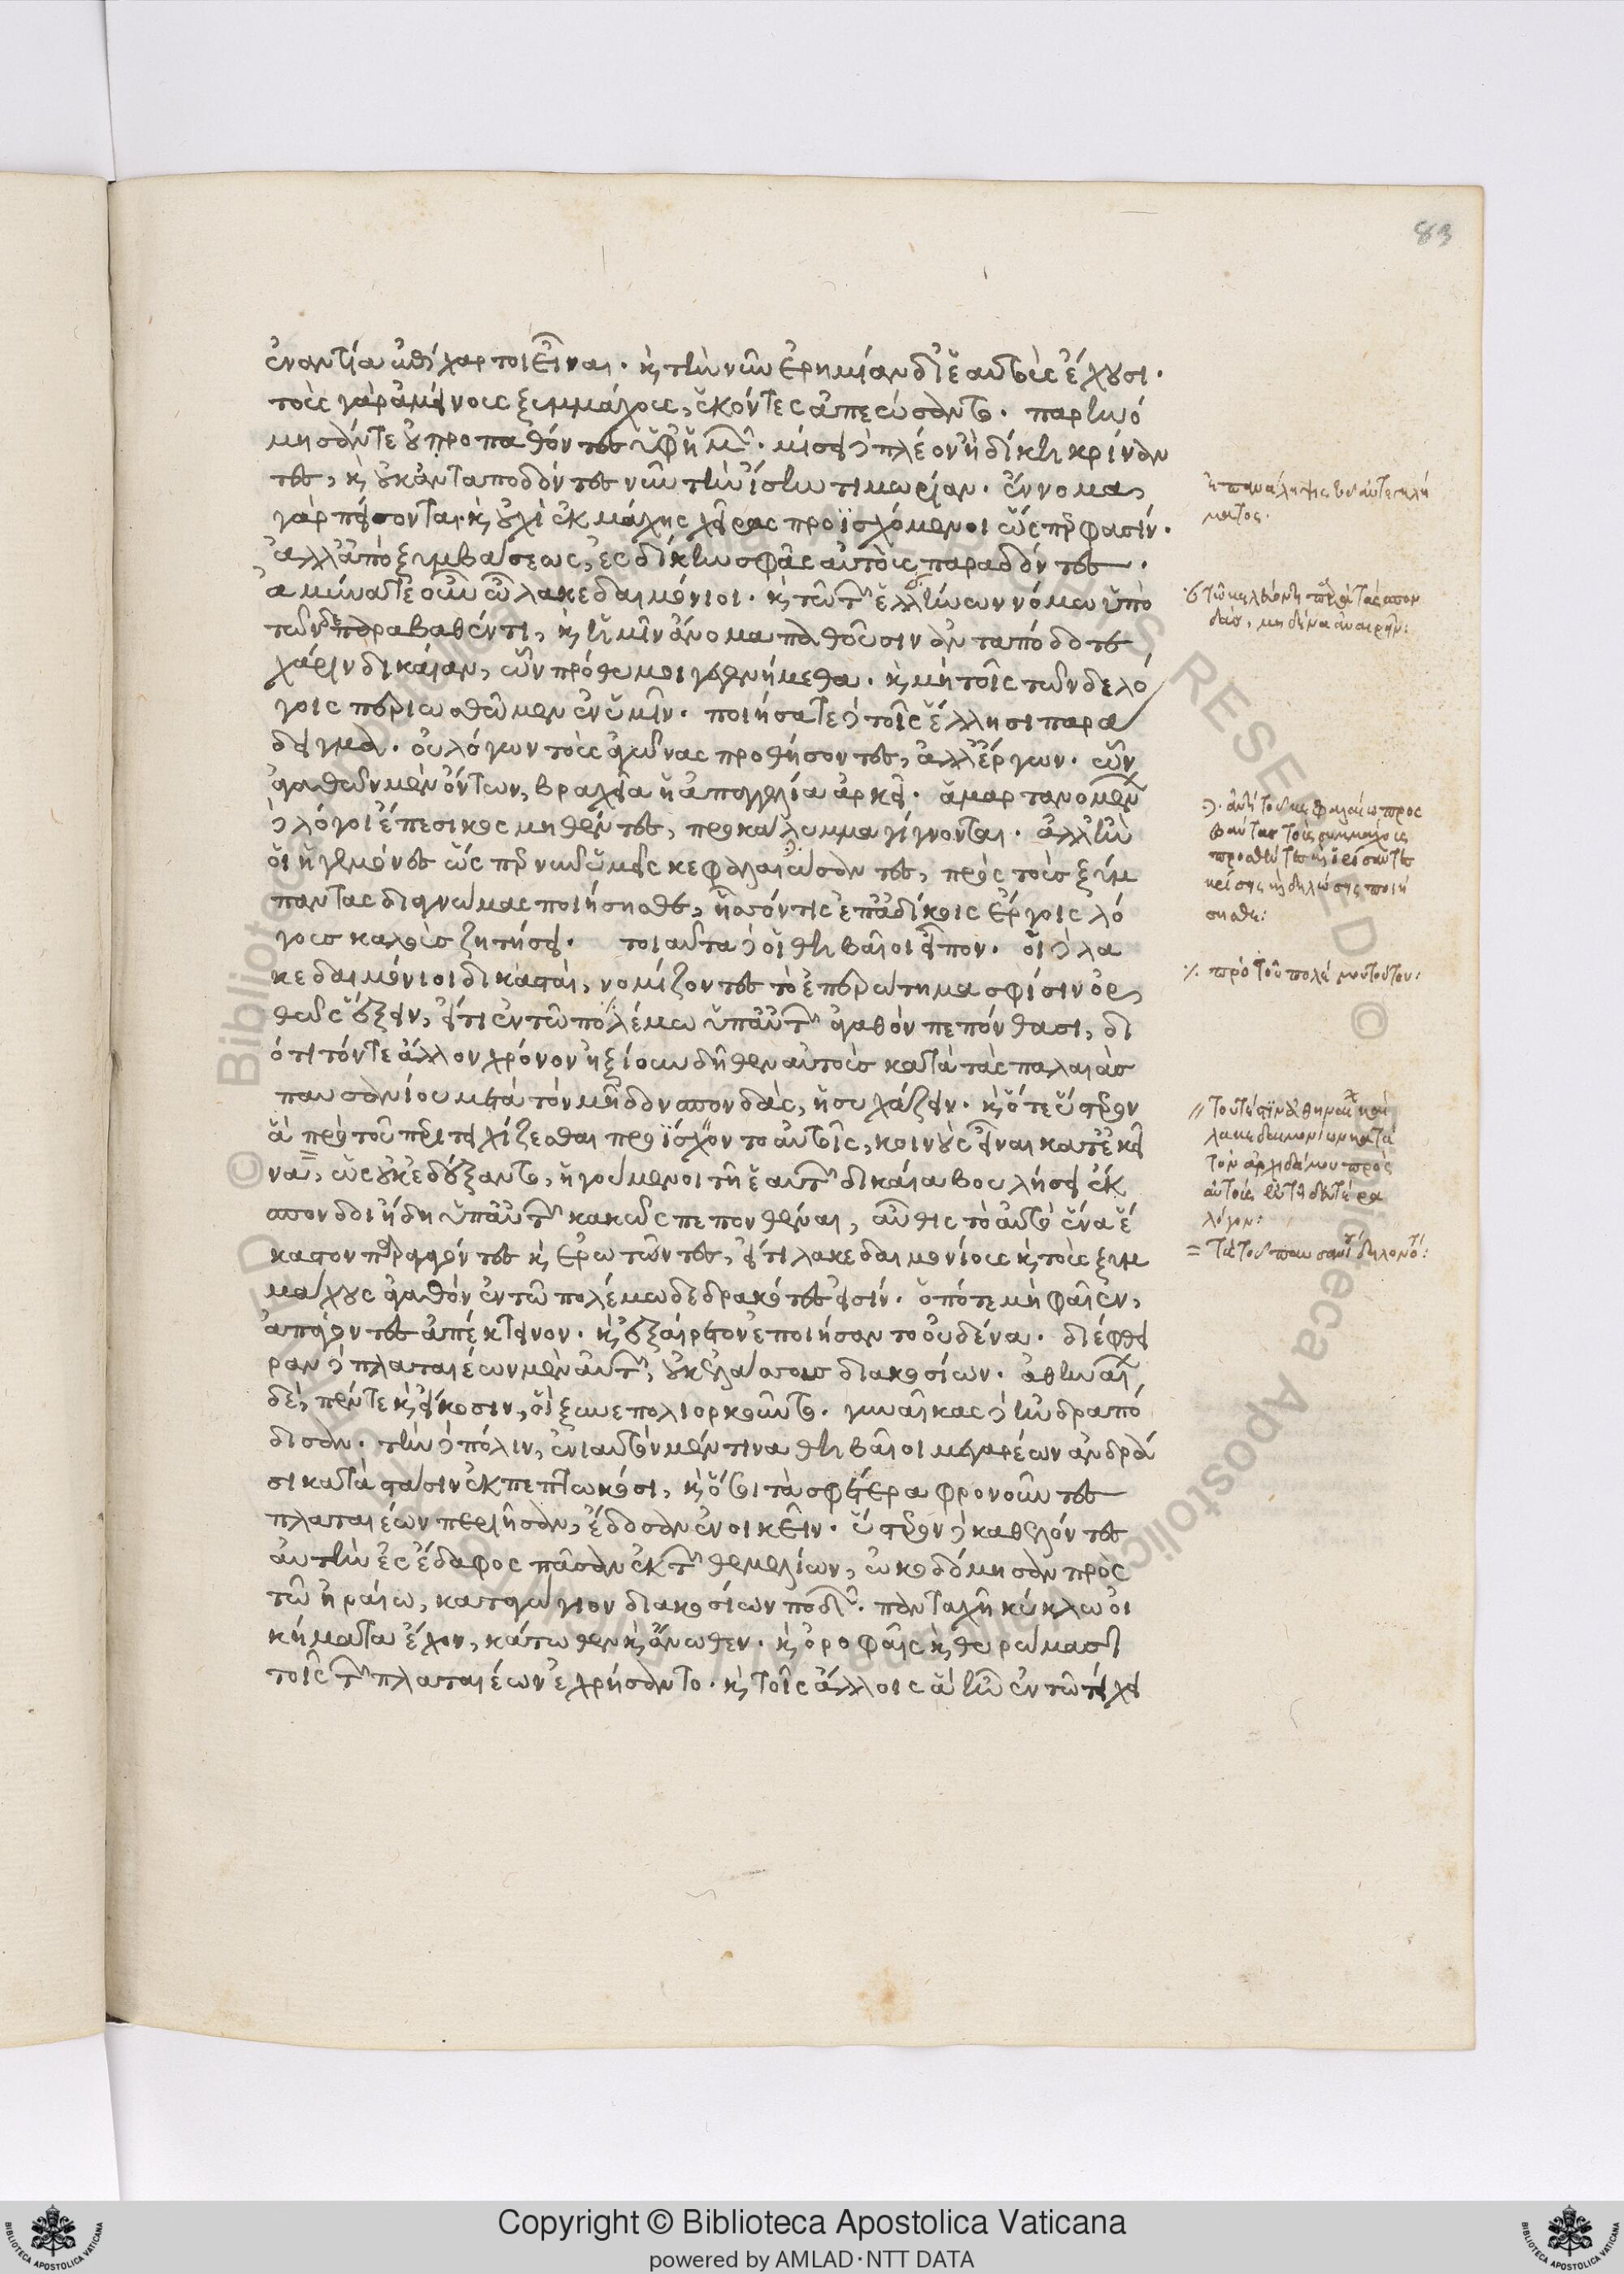 83
ἐναντία ἐπίχαρτοι εἶναι. κ τὴν νῦν ἐρημίαν δι' ἑαυτοὺς ἔχουσι.
τοὺς γὰρ ἀμείνους ξυμμάχους, ἑκόντες ἀπεώσαντο. παρηνό
μησάν τε οὐ προπαθόντες ὑφ' ἡμῶν. μίσει δὲ πλέον ἢ δίκη κρίναν
τες, κ οὐκ ἀνταποδόντες νῦν τὴν ἴσην τιμωρίαν. ἔννομα
γὰρ πείσονται. κ οὐχὶ ἐκ μάχης χεῖρας προϊσχόμενοι ὥς φασίν.
ἀλλ' ἀπὸ ξυμβάσεως, ἐς δίκην σφᾶς αὐτοὺς παραδόντες.
ἀμύνατε οὖν ὦ λακεδαιμόνιοι. κ τῷ τῶν ἑλλήνων νόμω ὑπὸ
τῶνδε παραβαθέντι, κ ἡμῖν ἄνομα παθοῦσιν ἀνταπόδοτε
χάριν δικαίαν, ὧν πρόθυμοι γεγενήμεθα. κ μὴ τοῖς τῶνδε λό
γοις περιωσθῶμεν ἐν ὑμῖν. ποιήσατε δὲ τοῖς ἕλλησι παρά
δειγμα. οὐ λόγων τοὺς ἀγῶνας προθήσοντες, ἀλλ' ἔργων. ὧν
ἀγαθῶν μὲν ὄντων, βραχεῖα ἡ ἀπαγγελία ἀρκεῖ. ἁμαρτανομένων
δὲ λόγοι ἔπεσι κοσμηθέντες, προκάλυμμα γίγνονται. ἀλλ' ἢν
οἱ ἡγεμόνες ὥσπερ νῦν ὑμεῖς κεφαλαιώσαντες, πρὸς τοὺς ξύμ
παντας διαγνώμας ποιήσησθε, ἧσσόν τις ἐπ' ἀδίκοις ἔργοις λό
γους καλοὺς ζητήσει. τοιαῦτα δὲ οἱ θηβαῖοι εἶπον. οἱ δὲ λα
κεδαιμόνιοι δικασταὶ, νομίζοντες τὸ ἐπερώτημα σφίσιν ὀρ
θῶς ἕξειν, εἴ τι ἐν τῷ πολέμω ὑπ' αὐτῶν ἀγαθὸν πεπόνθασι, δι
ότι τόν τε ἄλλον χρόνον ἠξίουν δῆθεν αὐτοὺς κατὰ τὰς παλαιὰς
παυσανίου μετὰ τὸν μῆδον σπονδὰς, ἡσυχάζειν. κ ὅτε ὕστερον
ἃ πρὸ τοῦ περιτειχίζεσθαι προϊσχοντο αὐτοῖς, κοινοὺς εἶναι κατ' ἐκεῖ
να, ὡς οὐκ ἐδέξαντο, ἡγούμενοι τῇ ἑαυτῶν δικαία βουλήσει ἔκ
σπονδοι ἤδη ὑπ' αὐτῶν κακῶς πεπονθέναι, αὖθις τὸ αὐτὸ ἕνα ἕ
καστον παραγαγόντες κ ἐρωτῶντες, εἴ τι λακεδαιμονίους κ τοὺς ξυμ
μάχους ἀγαθὸν ἐν τῷ πολέμω δεδρακότες εἰσίν. ὁπότε μὴ φαῖεν,
ἀπάγοντες ἀπέκτεινον. κ ἐξαίρετον ἐποιήσαντο οὐδένα. διέφθει
ραν δὲ πλαταιέων μὲν αὐτῶν, οὐκ ἐλάσσους διακοσίων. ἀθηναίων
δὲ, πέντε κ εἴκοσιν, οἳ ξυνεπολιορκοῦντο. γυναῖκας δὲ ἠνδραπό
δισαν. τὴν δὲ πόλιν, ἐνιαυτὸν μέν τινα θηβαῖοι μεγαρέων ἀνδρά
σι κατὰ στάσιν ἐκπεπτωκόσι, κ ὅσοι τὰ σφέτερα φρονοῦντες
πλαταιέων περιῆσαν, ἔδοσαν ἐνοικεῖν. ὕστερον δὲ καθελόντες
αὐτὴν ἐς ἔδαφος πᾶσαν ἐκ τῶν θεμελίων, ὠκοδόμησαν πρὸς
τῷ ἡραίω, καταγώγιον διακοσίων ποδῶν. πανταχῇ κύκλω οἰ
κήματα ἔχον, κάτωθεν κ ἄνωθεν. κ ὀροφαῖς κ θυρώμασι
τοῖς τῶν πλαταιέων ἐχρήσαντο. κ τοῖς ἄλλοις ἃ ἦν ἐν τῷ τείχει
ἡ ἐπανάληψις
ματος.
τῷ κελεύοντι
δὰς, μηδένα ἀναιρεῖν:
ἀντὶ τοῦ κεφαλαίω πρὸς
πάντας τοὺς συμμάχους
σησθε:
πρὸ τοῦ πολέμου τούτου:
λακεδαιμονίων κατὰ
τὸν ἀρχιδάμου πρὸς
αὐτοὺς
λόγον:
= τὰς τοῦ παυσανίου δηλονότι:
Copyright © Biblioteca Apostolica Vaticana
powered by AMLAD·NTT DATA